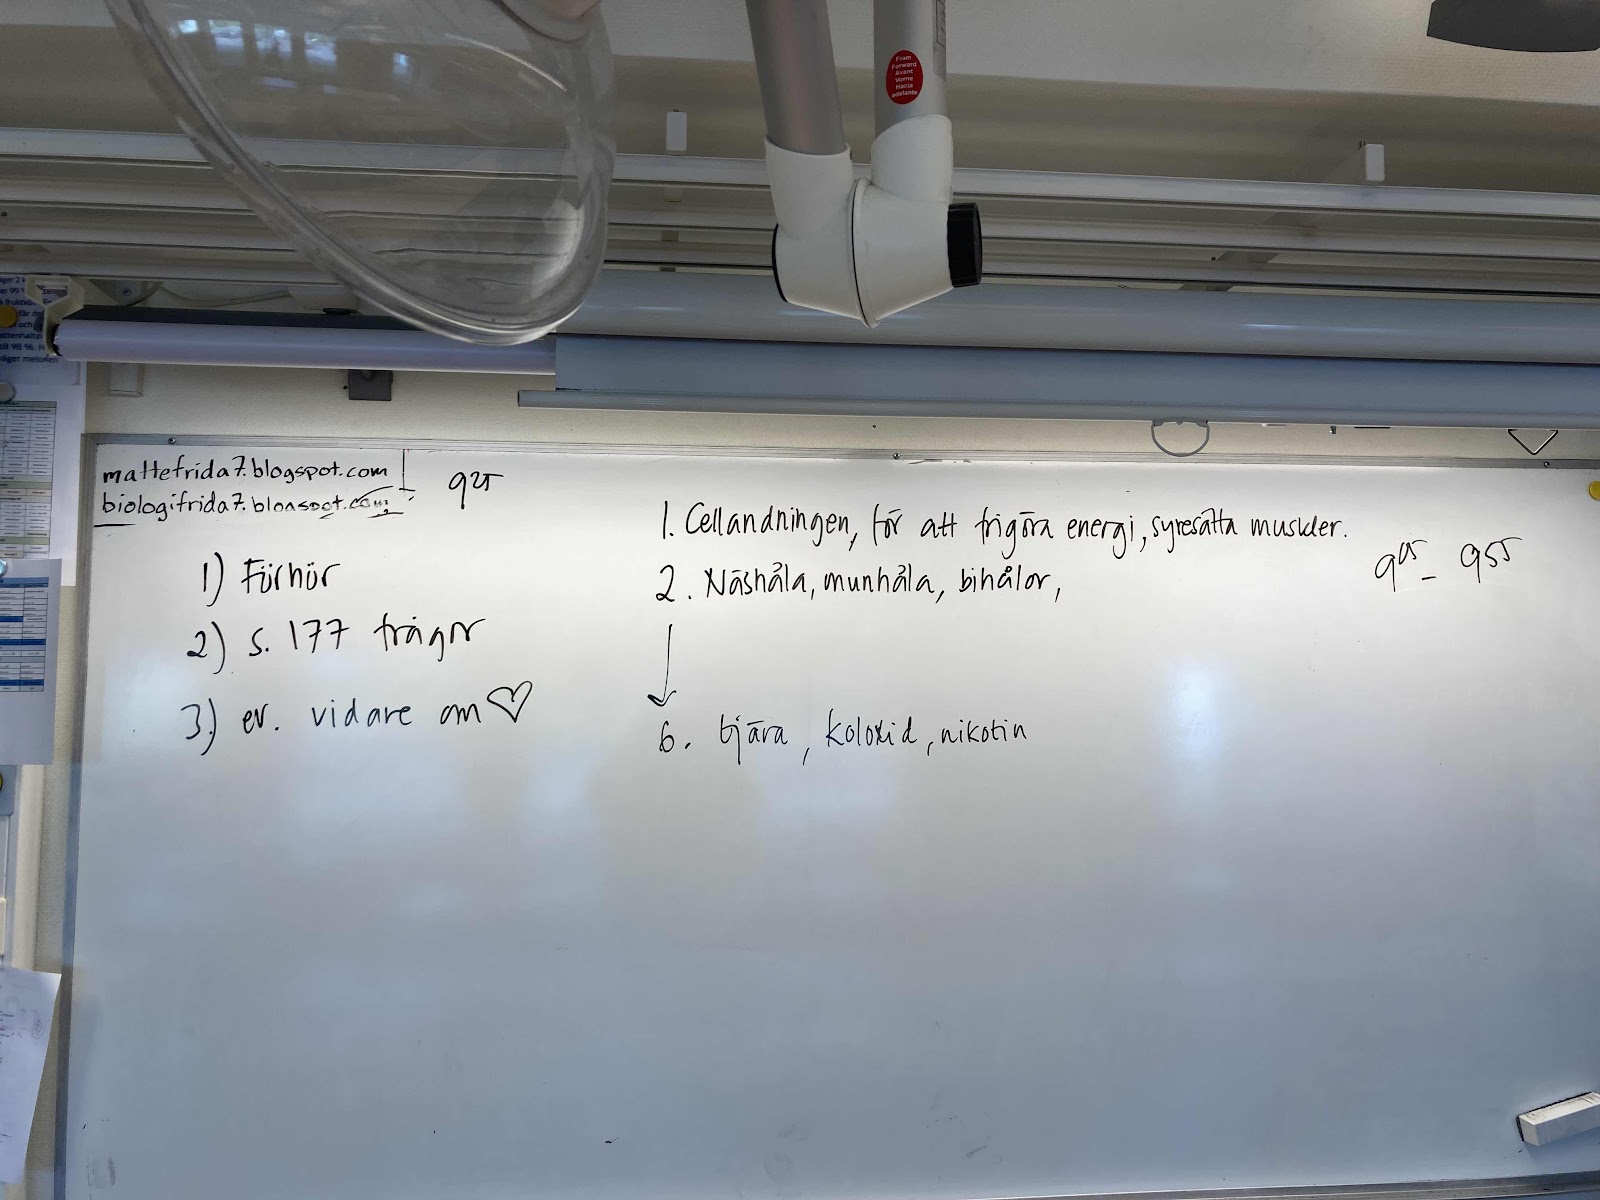 Fram
Forward
Avant
Vorne
Hacia
adelante
mattefrida7.blogspot.com
biologifrida7.blogspot.com
9 25
1) Förhör
2) s. 177 frågor
3) ev. vidare om ♡
1. Cellandningen, för att frigöra energi, syresätta muskler.
2. Näshåla, munhåla, bihålor,
↓
6. tjära, koloxid, nikotin
9 05 - 9 55